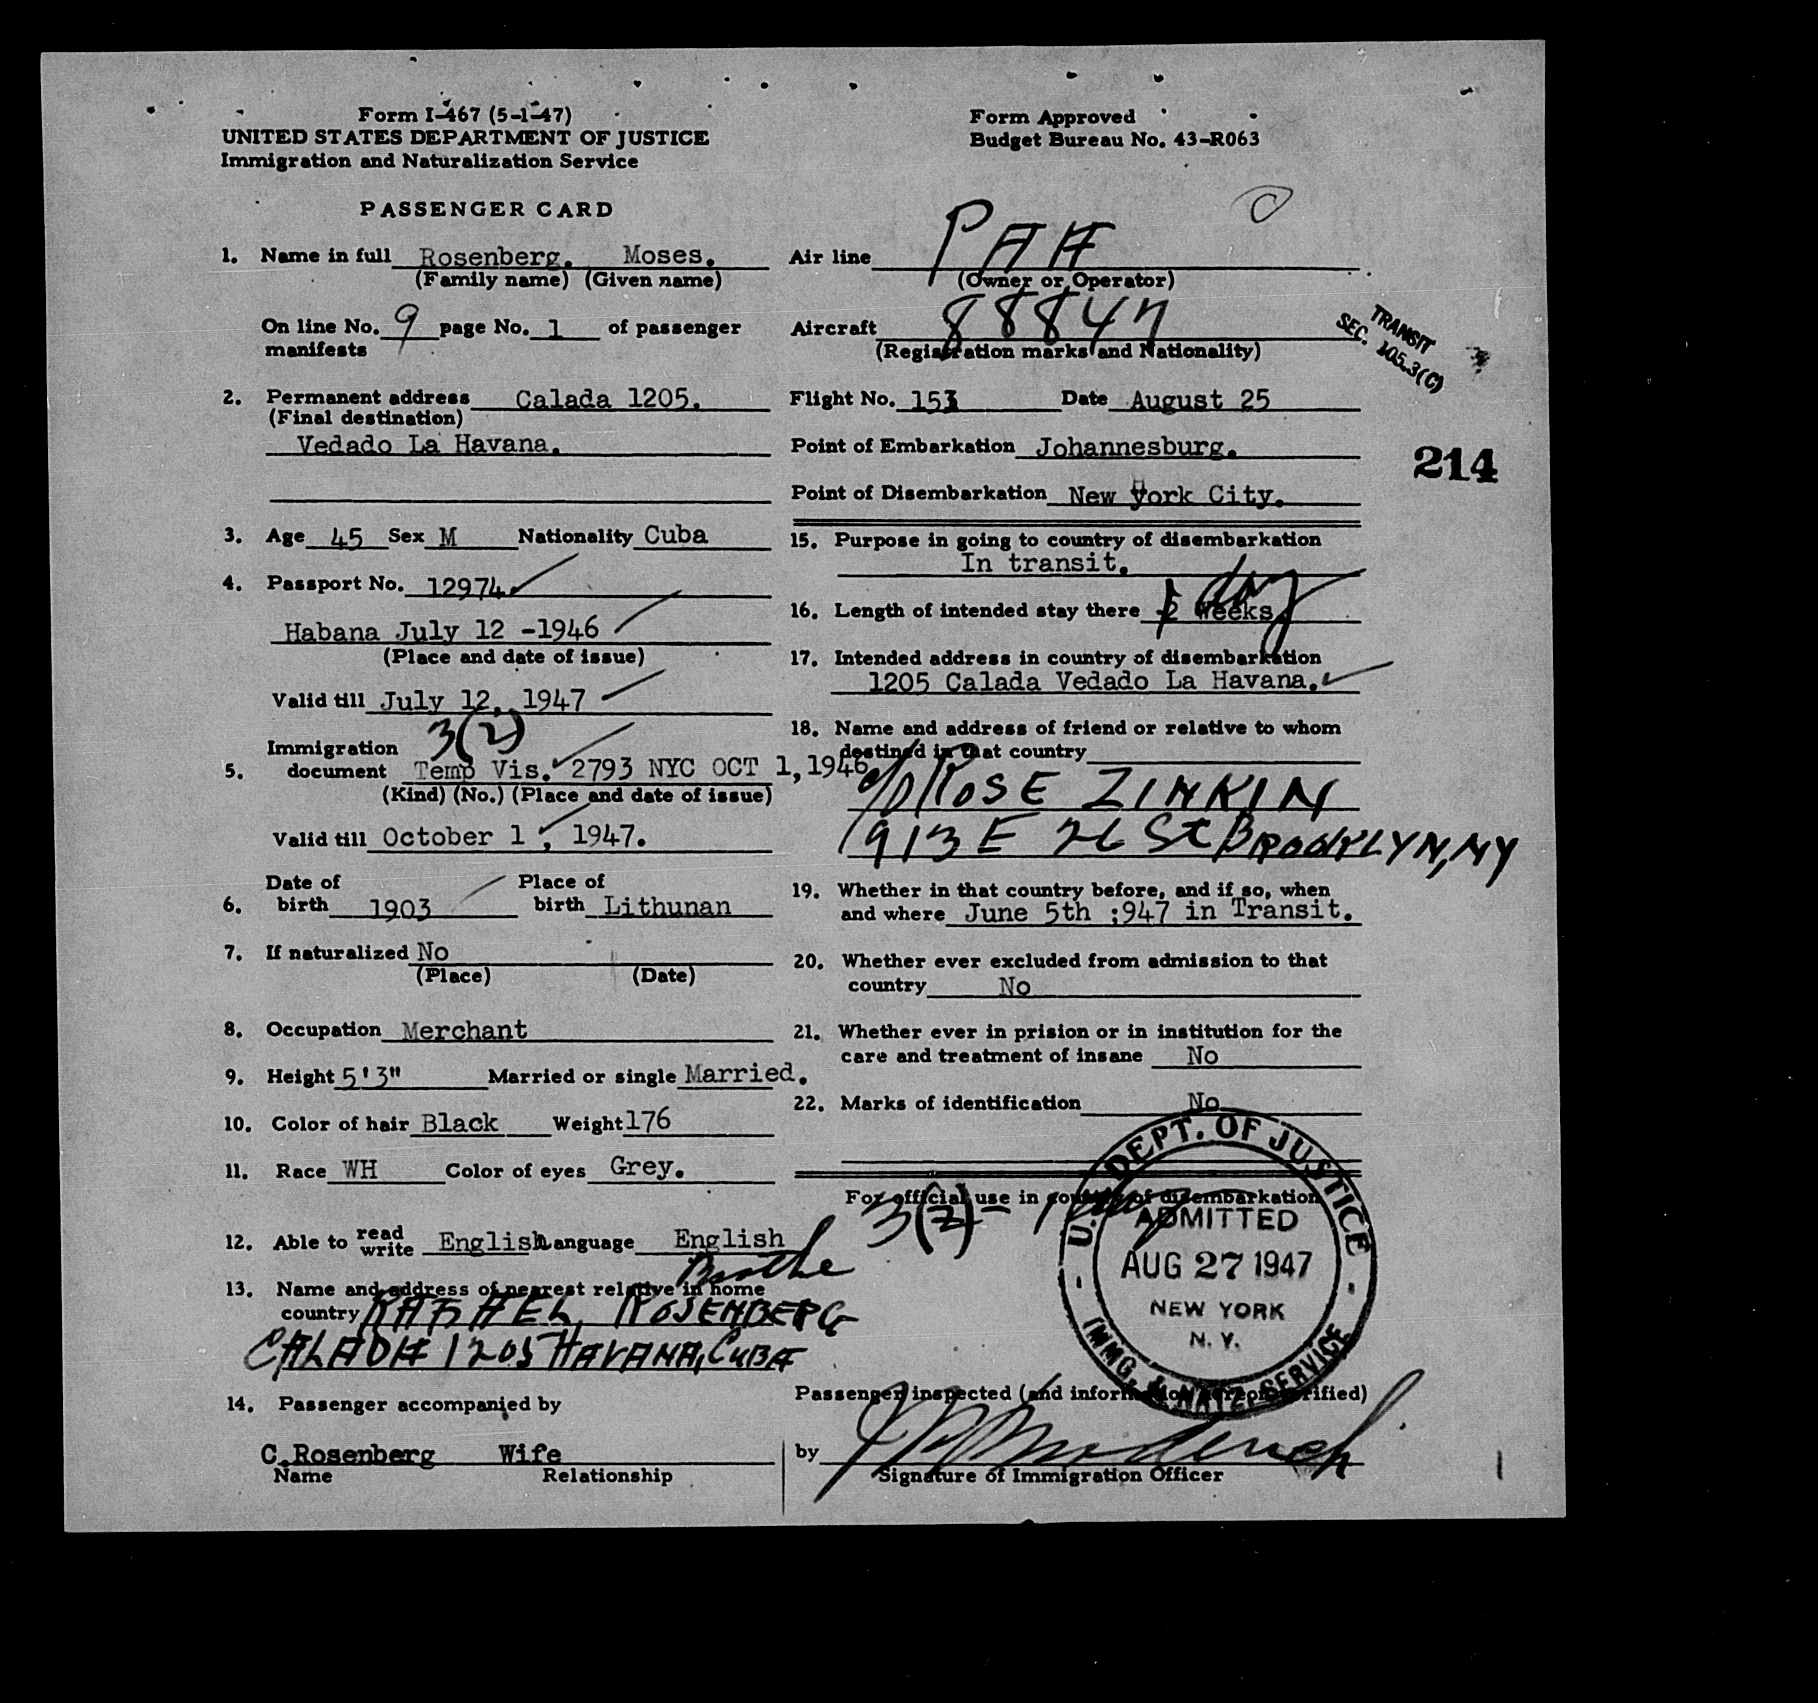 Form I-467 (5-1-47)
UNITED STATES DEPARTMENT OF JUSTICE
Immigration and Naturalization Service
Form Approved
Budget Bureau No. 43-R063
PASSENGER CARD
1. Name in full Rosenberg. Moses.
(Family name) (Given name)
On line No. 9 page No. 1 of passenger
manifests
2. Permanent address Calada 1205.
(Final destination)
Vedado La Havana.
3. Age 45 Sex M Nationality Cuba
4. Passport No. 12974
Habana July 12 -1946
(Place and date of issue)
Valid till July 12, 1947
3(2)
Immigration
5. document Temp Vis. 2793 NYC OCT 1, 1946
(Kind) (No.) (Place and date of issue)
Valid till October 1, 1947.
Date of Place of
6. birth 1903 birth Lithunan
7. If naturalized No
(Place) (Date)
8. Occupation Merchant
9. Height 5'3" Married or single Married.
10. Color of hair Black Weight 176
11. Race WH Color of eyes Grey.
12. Able to read write English Language English
Brothe
13. Name and address of nearest relative in home
country RAFAEL ROSENBERG
CALADA 1205 HAVANA, CUBA
14. Passenger accompanied by
C.Rosenberg Wife
Name Relationship
Air line PAA
(Owner or Operator)
Aircraft 88847
(Registration marks and Nationality)
TRANSIT
SEC. 105.3(C)
Flight No. 153 Date August 25
Point of Embarkation Johannesburg.
214
Point of Disembarkation New York City.
15. Purpose in going to country of disembarkation
In transit.
16. Length of intended stay there 2 Weeks 1 day
17. Intended address in country of disembarkation
1205 Calada Vedado La Havana.
18. Name and address of friend or relative to whom
destined in that country
c/o ROSE ZINKIN
1913 E 26 St BROOKLYN, NY
19. Whether in that country before, and if so, when
and where June 5th :947 in Transit.
20. Whether ever excluded from admission to that
country No
21. Whether ever in prision or in institution for the
care and treatment of insane No
22. Marks of identification No
For official use in country of disembarkation
3(2) - 1 day
U.S. DEPT. OF JUSTICE
ADMITTED
AUG 27 1947
NEW YORK
N. Y.
IMMG. & NATZ. SERVICE
Passenger inspected (and information hereon verified)
by
Signature of Immigration Officer